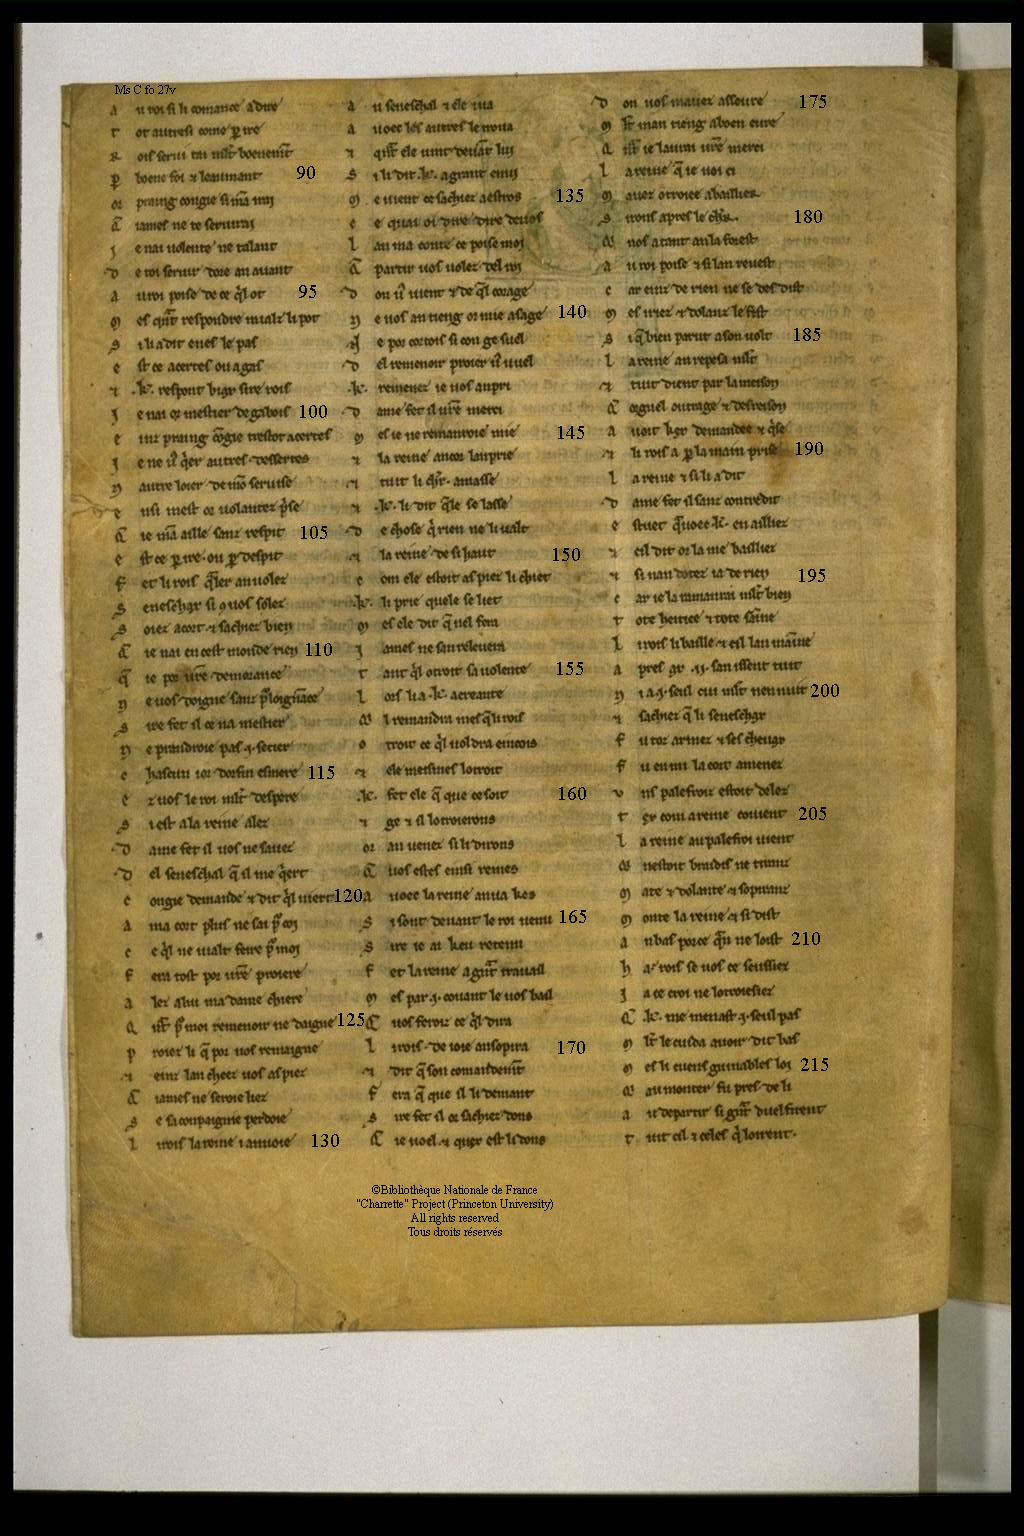 Ms C fo 27v
a u roi si li comance a dire
t ot autresi come p ire
R ois serui tai mlt boenemt
p boene foi ⁊ leaumant 90
or praing congie si man irai
Q iames ne te seruirai
j e nai uolente ne talant
D e toi seruir dore an auant
a u roi poise de ce ql ot 95
m es qnt respondre mialz li pot
s i li a dit enes le pas
e st ce acertes ou a gas
⁊ .k. respont biax sire rois
j e nai or mestier de gabois 100
e inz praing cogie trestot acertes
j e ne uos qier autres dessertes
n autre loier de mo seruise
e nsi mest or uolantez prise
Q ie man aille sanz respit 105
e st ce p ire ou p despit
f et li rois qaler an uolez
s eneschax si 9 uos solez
s oiez a cort ⁊ sachiez bien
Q ie nai en cest monde rien 110
q ie por ure demorance
n e uos doigne sanz ploignace
s ire fet il ce na mestier
n e prandroie pas .j. setier
c hascun ior dor fin esmere 115
e z uos le roi mlt despere
s i est a la reine alez
D ame fet il uos ne sauez
D el seneschal q il me qert
c ongie demande ⁊ dit ql niert 120
a ma cort plus ne sai p coi
c e ql ne uialt feire p moi
f era tost por ure proiere
a lez a lui ma dame chiere
Q nt p moi remenoir ne daigne 125
p roiez li q por uos remaigne
⁊ einz lan cheez uos as piez
Q iames ne seroie liez
s e sa conpaignie perdoie
l i rois la reine i anuoie 130
a u seneschal ⁊ ele i ua
a uoec les autres le troua
⁊ qnt ele uint deuat lui
s i li dit .k. a grant enui
m e uient ce sachiez a estros 135
c e quai oi dire de uos
l an ma conte ce poise moi
Q partir uos uolez del roi
D on uos uient ⁊ de ql corage
n e uos an tieng or mie a sage 140
q e por cortois si con ge suel
D el remenoir proier uos uuel
.k. remenez ie uos an pri
D ame fet il ure merci
m es ie ne remanroie mie 145
⁊ la reine ancor lan prie
⁊ tuit li chr a masse
⁊ .k. li dit qle se lasse
D e chose q rien ne li ualt
⁊ la reine de si haut 150
c om ele estoit as piez li chiet
.k. li prie quele se liet
m es ele dit q nel fera
j ames ne san releuera
t ant ql otroit sa uolente 155
l ors li a .k. acreante
Q l remandra mes q li rois
o troit ce ql uoldra eincois
⁊ ele meismes lotroit
.k. fet ele q que ce soit 160
⁊ ge ⁊ il lotroierons
or an uenez si li dirons
Q uos estes einsi remes
a uoec la reine an ua kes
s i sont deuant le roi uenu 165
s ire ie ai keu retenu
f et la reine a gnt trauail
m es par .j. couant le uos bail
Q uos feroiz ce ql dira
l i rois de ioie an sopira 170
⁊ dit q son comandemt
f era q que il li demant
s ire fet il or sachiez dons
Q ie uoel ⁊ quex est li dons
D on uos mauez asseure 175
m lt man tieng a boen eure
Q nt ie laurai ure merci
l a reine q ie uoi ci
m auez otroiee a baillier
s i irons apres le chr 180
Q i nos atant an la forest
a u roi poise ⁊ si lan reuest
c ar einz de rien ne se desdist
m es iriez ⁊ dolanz le fist
s i q bien parut a son uolt 185
l a reine an repesa mlt
⁊ tuit dient par la meison
Q orguel outrage ⁊ desreison
a uoit kex demandee ⁊ qse
⁊ li rois a p la main prise 190
l a reine ⁊ si li a dit
D ame fet il sanz contredit
e stuet qauoec .k. en ailliez
⁊ cil dit or la me bailliez
⁊ si nan dotez ia de rien 195
c ar ie la ramanrai mlt bien
t ote heitiee ⁊ tote saine
l i rois li baille ⁊ cil lan maine
a pres ax .ij. san issent tuit
n i a .j. seul cui mlt nen nuit 200
⁊ sachiez q li seneschax
f u toz armez ⁊ ses cheuax
f u en mi la cort amenez
v ns palefroiz estoit delez
t ex com a reine couient 205
l a reine au palefroi uient
Q i nestoit braidis ne tiranz
m ate ⁊ dolante ⁊ sopiranz
m onte la reine ⁊ si dist
a n bas por ce qn ne loist 210
h a rois se uos ce seussiez
j a ce croi ne lotroiesiez
Q .k. me menast .j. seul pas
m lt le cuida auoir dit bas
m es li cuens guinables loi 215
Q au monter fu pres de li
a u departir si gnt duel firent
t uit cil ⁊ celes q loirent.
©Bibliothèque Nationale de France
"Charrette" Project (Princeton University)
All rights reserved
Tous droits réservés